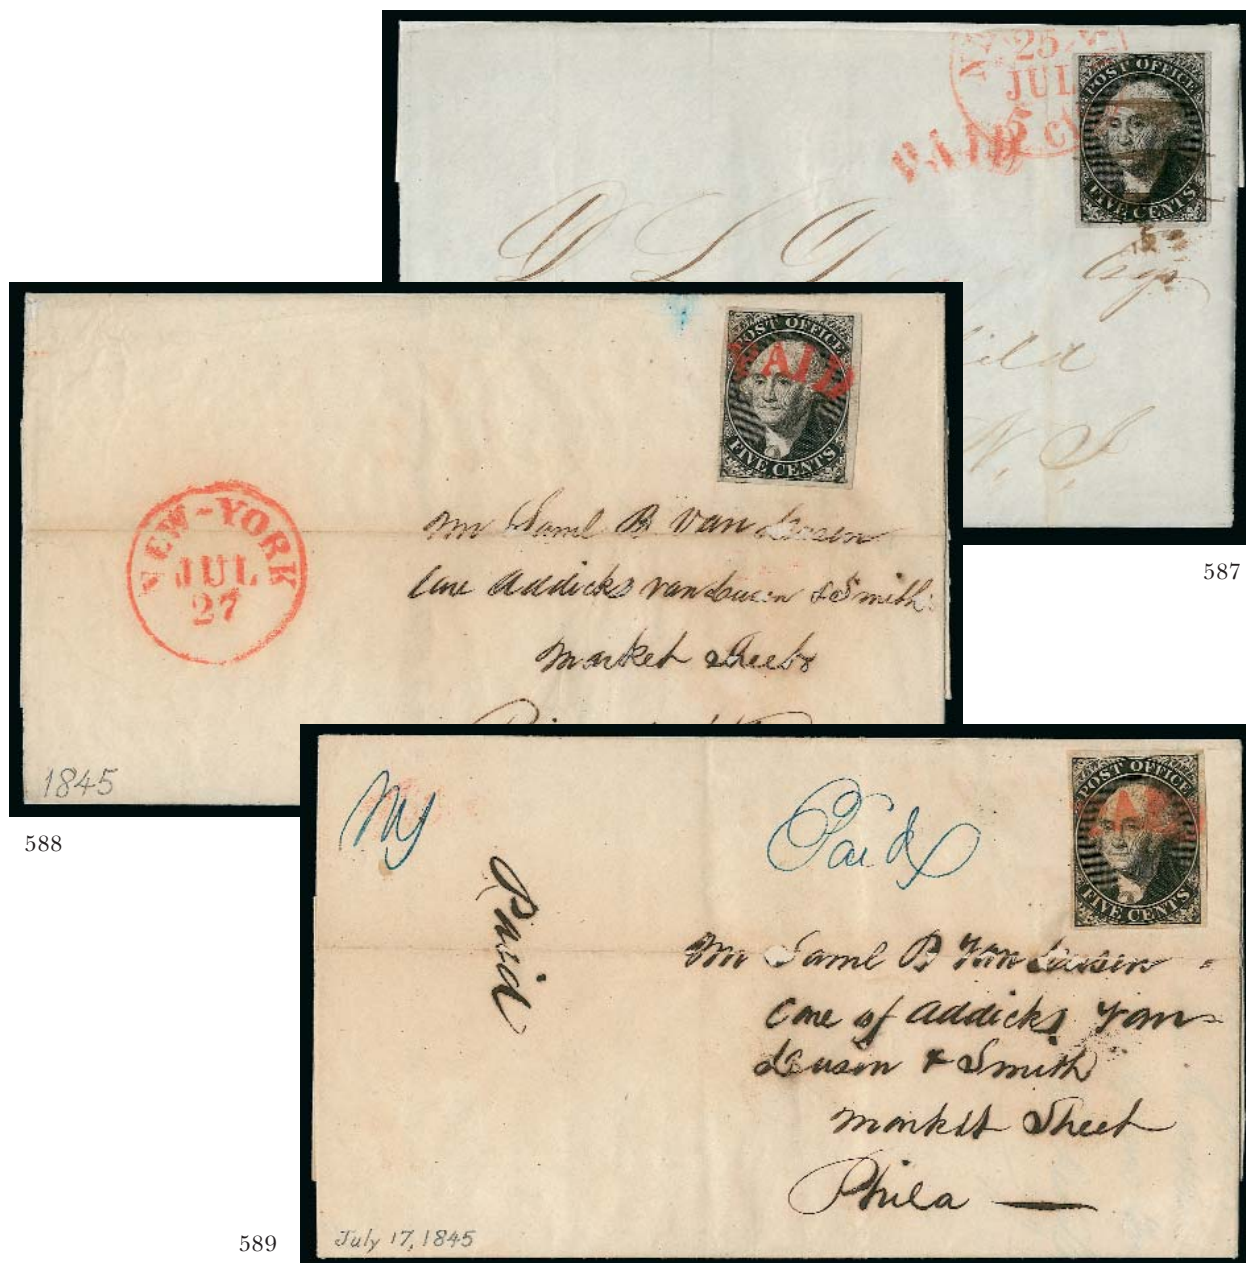 25
JUL
PAID
POST OFFICE
FIVE CENTS
Esqr
N. J.
587
POST OFFICE
PAID
FIVE CENTS
NEW-YORK
JUL
27
Mr Saml B Van Deusen
Care Addicks Van Deusen & Smith
Market Street
1845
588
NY
Paid
Paid
POST OFFICE
FIVE CENTS
Mr Saml B Van Deusen
Care of Addicks Van
Deusen & Smith
Market Street
Phila
July 17, 1845
589